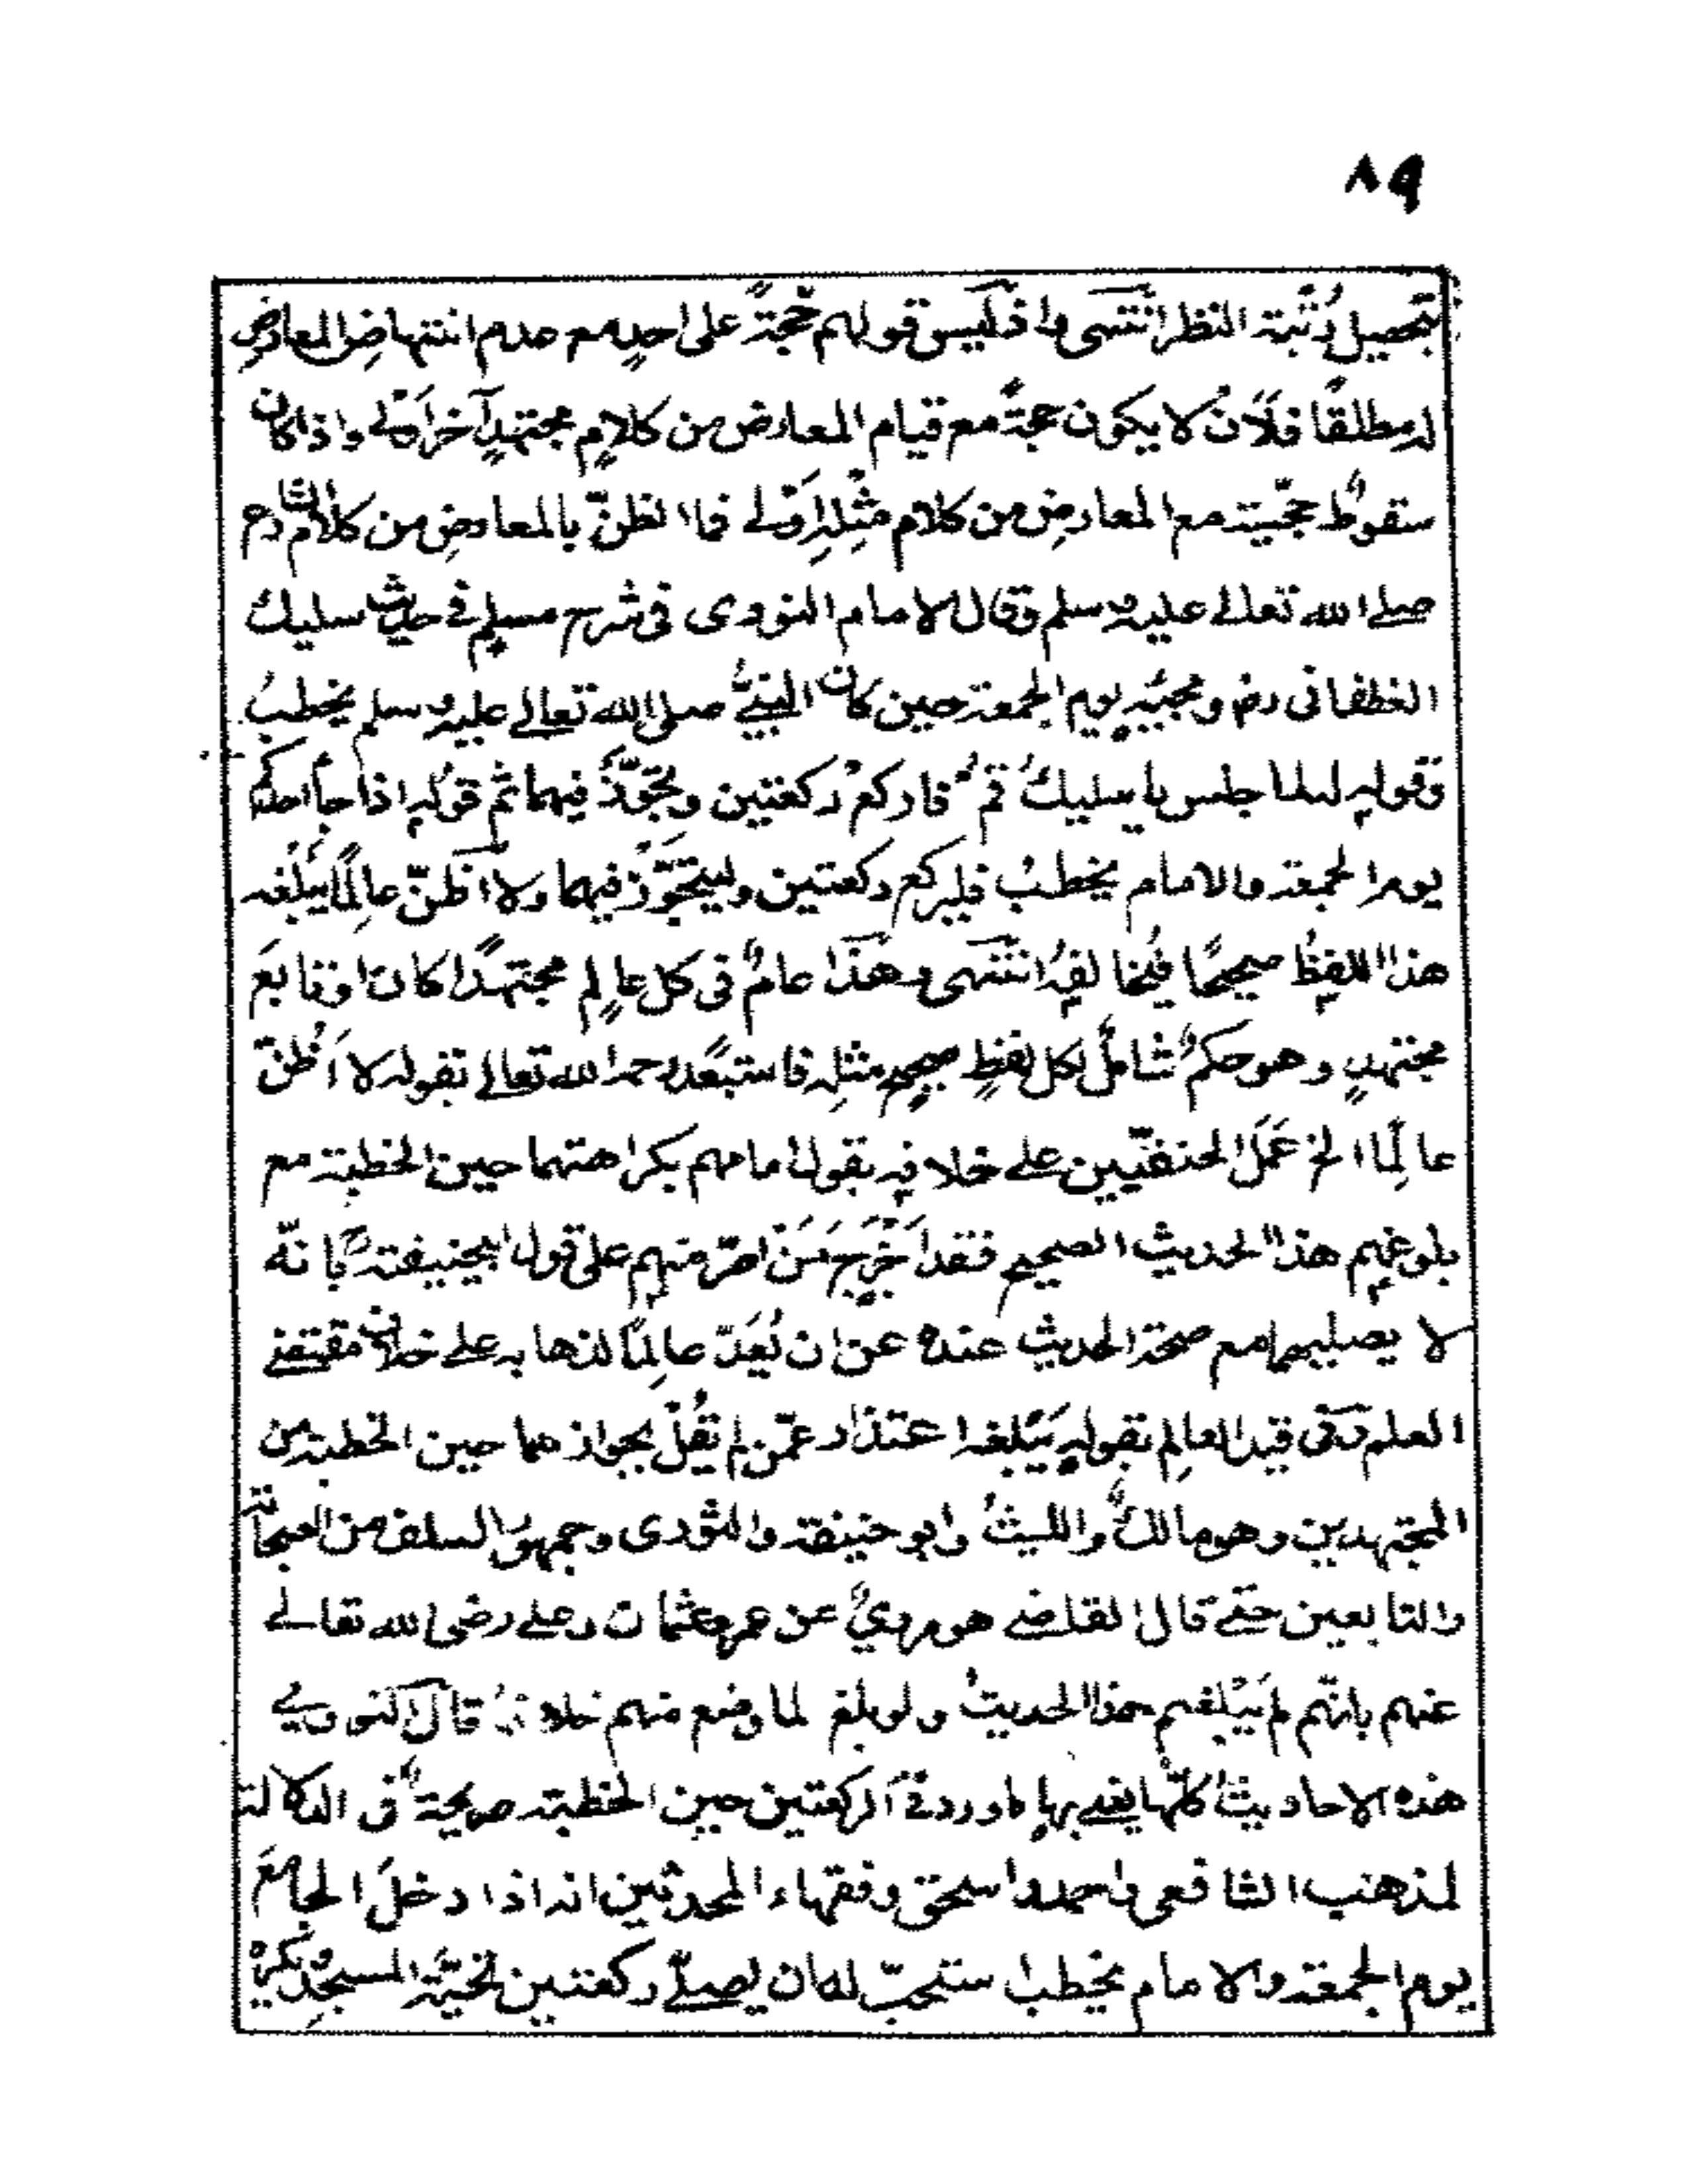 ٨٩
بتحصيل رُتْبة النظر انتهى واذ لَيس قولهم حُجّةً على احدٍ مع عدم انتهاضِ المعارضِ
له مطلقًا فلَاَنْ لا يكون حجّةً مع قيام المعارض من كلامِ مجتهدٍ آخر اَوْلى واذا كان
سقوطُ حجّيته مع المعارضِ من كلام مثْلِهِ اَوْلى فما الظنّ بالمعارضِ من كلام الشارع
صلے الله تعالے عليه وسلم وقال الامام النووى فى شرح مسلم فى حديث سليك
الغطفانى رض ومجيئِه يوم الجمعة حين كان النبىُّ صلى الله تعالى عليه وسلم يخطبُ
وقولِه له لما جلس يا سليكُ قُمْ فاركعْ ركعتين وتجوّزْ فيهما ثم قولِه اذا جاأحدكم
يوم الجمعة والامام يخطبُ فليركع ركعتين وليتجوّزْ فيهما ولا اظنّ عالِمًا يَبْلُغُه
هذا اللفظُ صحيحًا فيُخالفُه انتهى وهَذَا عامٌ فى كل عالِمٍ مجتهدًا كان او تابعَ
مجتهدٍ وهو حكمٌ شاملٌ لكل لفظٍ صحيحٍ مثلِه فاستبعَد رحمه الله تعالى بقوله لا اَظُنّ
عالِمًا الخ عَمَلَ الحنفيّين على خلافِه بقول امامهم بكراهتهما حين الخطبة مع
بلوغِهم هذا الحديث الصحيح فقد اَخْرَجَ مَنْ اصرّ منهم على قول ابيحنيفة بأنّه
لا يصليهما مع صحّة الحديث عنده عن ان يُعَدّ عالِمًا لذهابه على خلاف مقتضے
العلم وفى قيد العالِم بقولِه يَبْلغه اعتذار عمّن لم يقُلْ بجوازهما حين الخطبة من
المجتهدين وهو مالكٌ والليثُ وابو حنيفة والثورى وجمهورُ السلف من الصحابة
والتابعين حتے قال القاضے هو مروىٌّ عن عمر وعثمان وعلے رضى الله تعالے
عنهم بانهّم لم يَبْلغهم هذا الحديثُ ولو بلغ لما وقع منهم خلافه قال النووىے
هذه الاحاديثُ كلّها يعنے بها ما ورد فى الركعتين حين الخطبة صريحةٌ فى الدلالة
لمذهب الشافعى واحمد واسحق وفقهاء المحدثين انه اذا دخلَ الجامعَ
يوم الجمعة والامام يخطب ستحبّ له ان يصلے ركعتين تحيّة المسجدِ ويكره